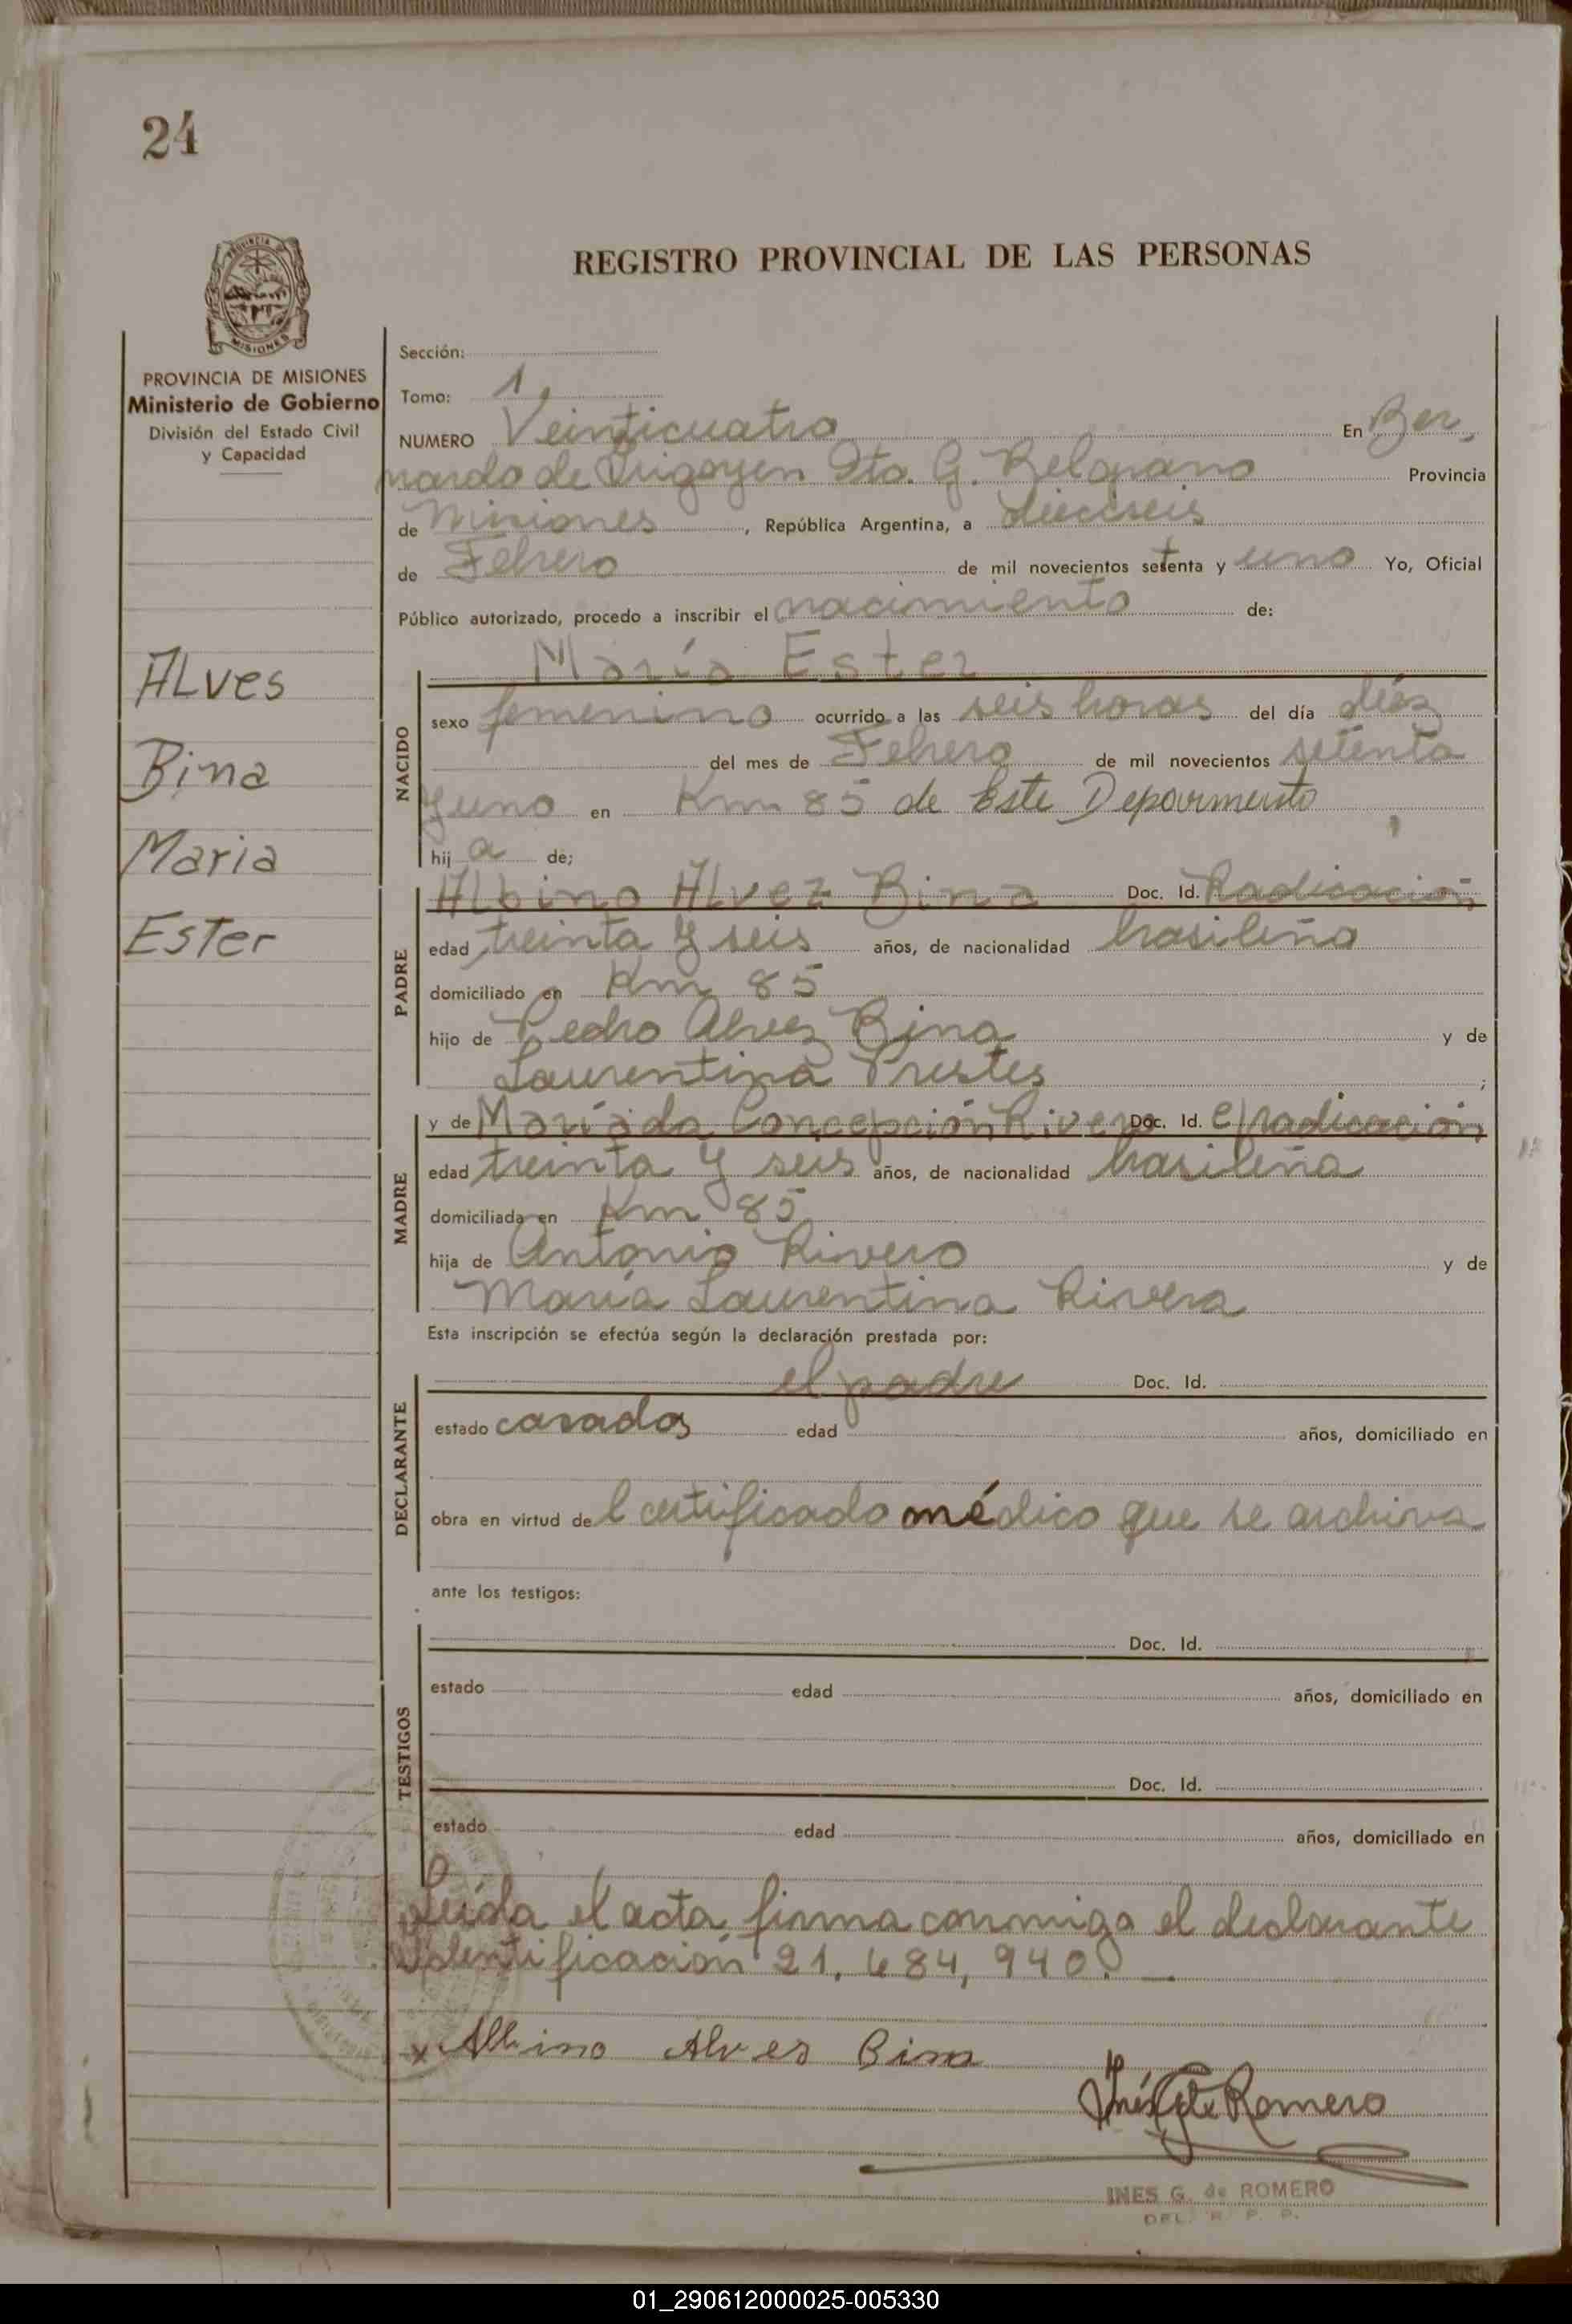 24
PROVINCIA DE
MISIONES
REGISTRO PROVINCIAL DE LAS PERSONAS
PROVINCIA DE MISIONES
Ministerio de Gobierno
División del Estado Civil
y Capacidad
ALves
Bina
Maria
Ester
Sección:
Tomo: 1,
NUMERO Veinticuatro En Ber,
nardo de Irigoyen Dto. G. Belgrano Provincia
de Misiones, República Argentina, a dieciseis
de Febrero de mil novecientos setenta y uno Yo, Oficial
Público autorizado, procedo a inscribir el nacimiento de:
María Ester
NACIDO
sexo femenino ocurrido a las seis horas del día diéz
del mes de Febrero de mil novecientos setenta
y uno en Km 85 de Este Deparmento
hija de;
PADRE
ALbino ALvez Bina Doc. Id. Radicación
edad treinta y seis años, de nacionalidad brasileña
domiciliado en Km 85
hijo de Pedro Alvez Bina y de
Laurentina Prestes ;
MADRE
y de María da Concepción Rivero Doc. Id. c/radicación
edad treinta y seis años, de nacionalidad brasileña
domiciliada en Km 85
hija de Antonio Rivero y de
María Laurentina Rivera
Esta inscripción se efectúa según la declaración prestada por:
DECLARANTE
el padre Doc. Id.
estado casados edad años, domiciliado en
obra en virtud del certificado médico que se archiva
ante los testigos:
TESTIGOS
Doc. Id.
estado edad años, domiciliado en
Doc. Id.
estado edad años, domiciliado en
Leída el acta firma conmigo el declarante
Identificación 21,484,940.
x Albino Alves Bina
Inés G de Romero
INES G. de ROMERO
DEL. R. P. P.
01_290612000025-005330